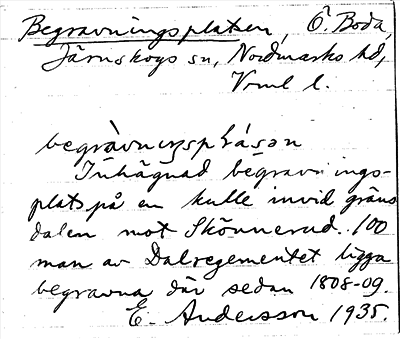 Begravningsplatsen, Ö. Boda,
Järnskogs sn, Nordmarks hd,
Vrml l.
begràvningspḷásən
Inhägnad begravnings-
plats på en kulle invid gräns
dalen mot Skönnerud. 100
man av Dalregementet ligga
begravna där sedan 1808-09.
E. Andersson 1935.